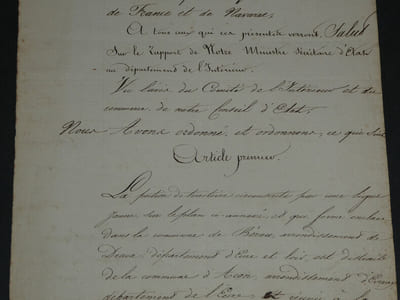 de France et de Navarre,
A tous ceux qui ces présentes verront, Salut
Sur le rapport de Notre Ministre Secrétaire d'Etat
au département de l'Intérieur.
Vu l'avis du Comité de l'Intérieur et du
commerce de notre Conseil d'Etat;
Nous Avons ordonné, et ordonnons, ce qui suit
Article premier.
La portion de territoire circonscrite par une ligne
jaune sur le plan ci annexé, et qui forme enclave
dans la commune de Bérou, arrondissement de
Dreux, département d'Eure et loir, est distraite
de la commune d'Acon, arrondissement d'Evreux
département de l'Eure, et réunie à la